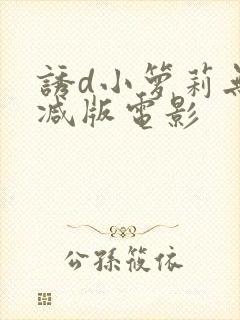 誘d小箩莉
減版電影
公孫筱依